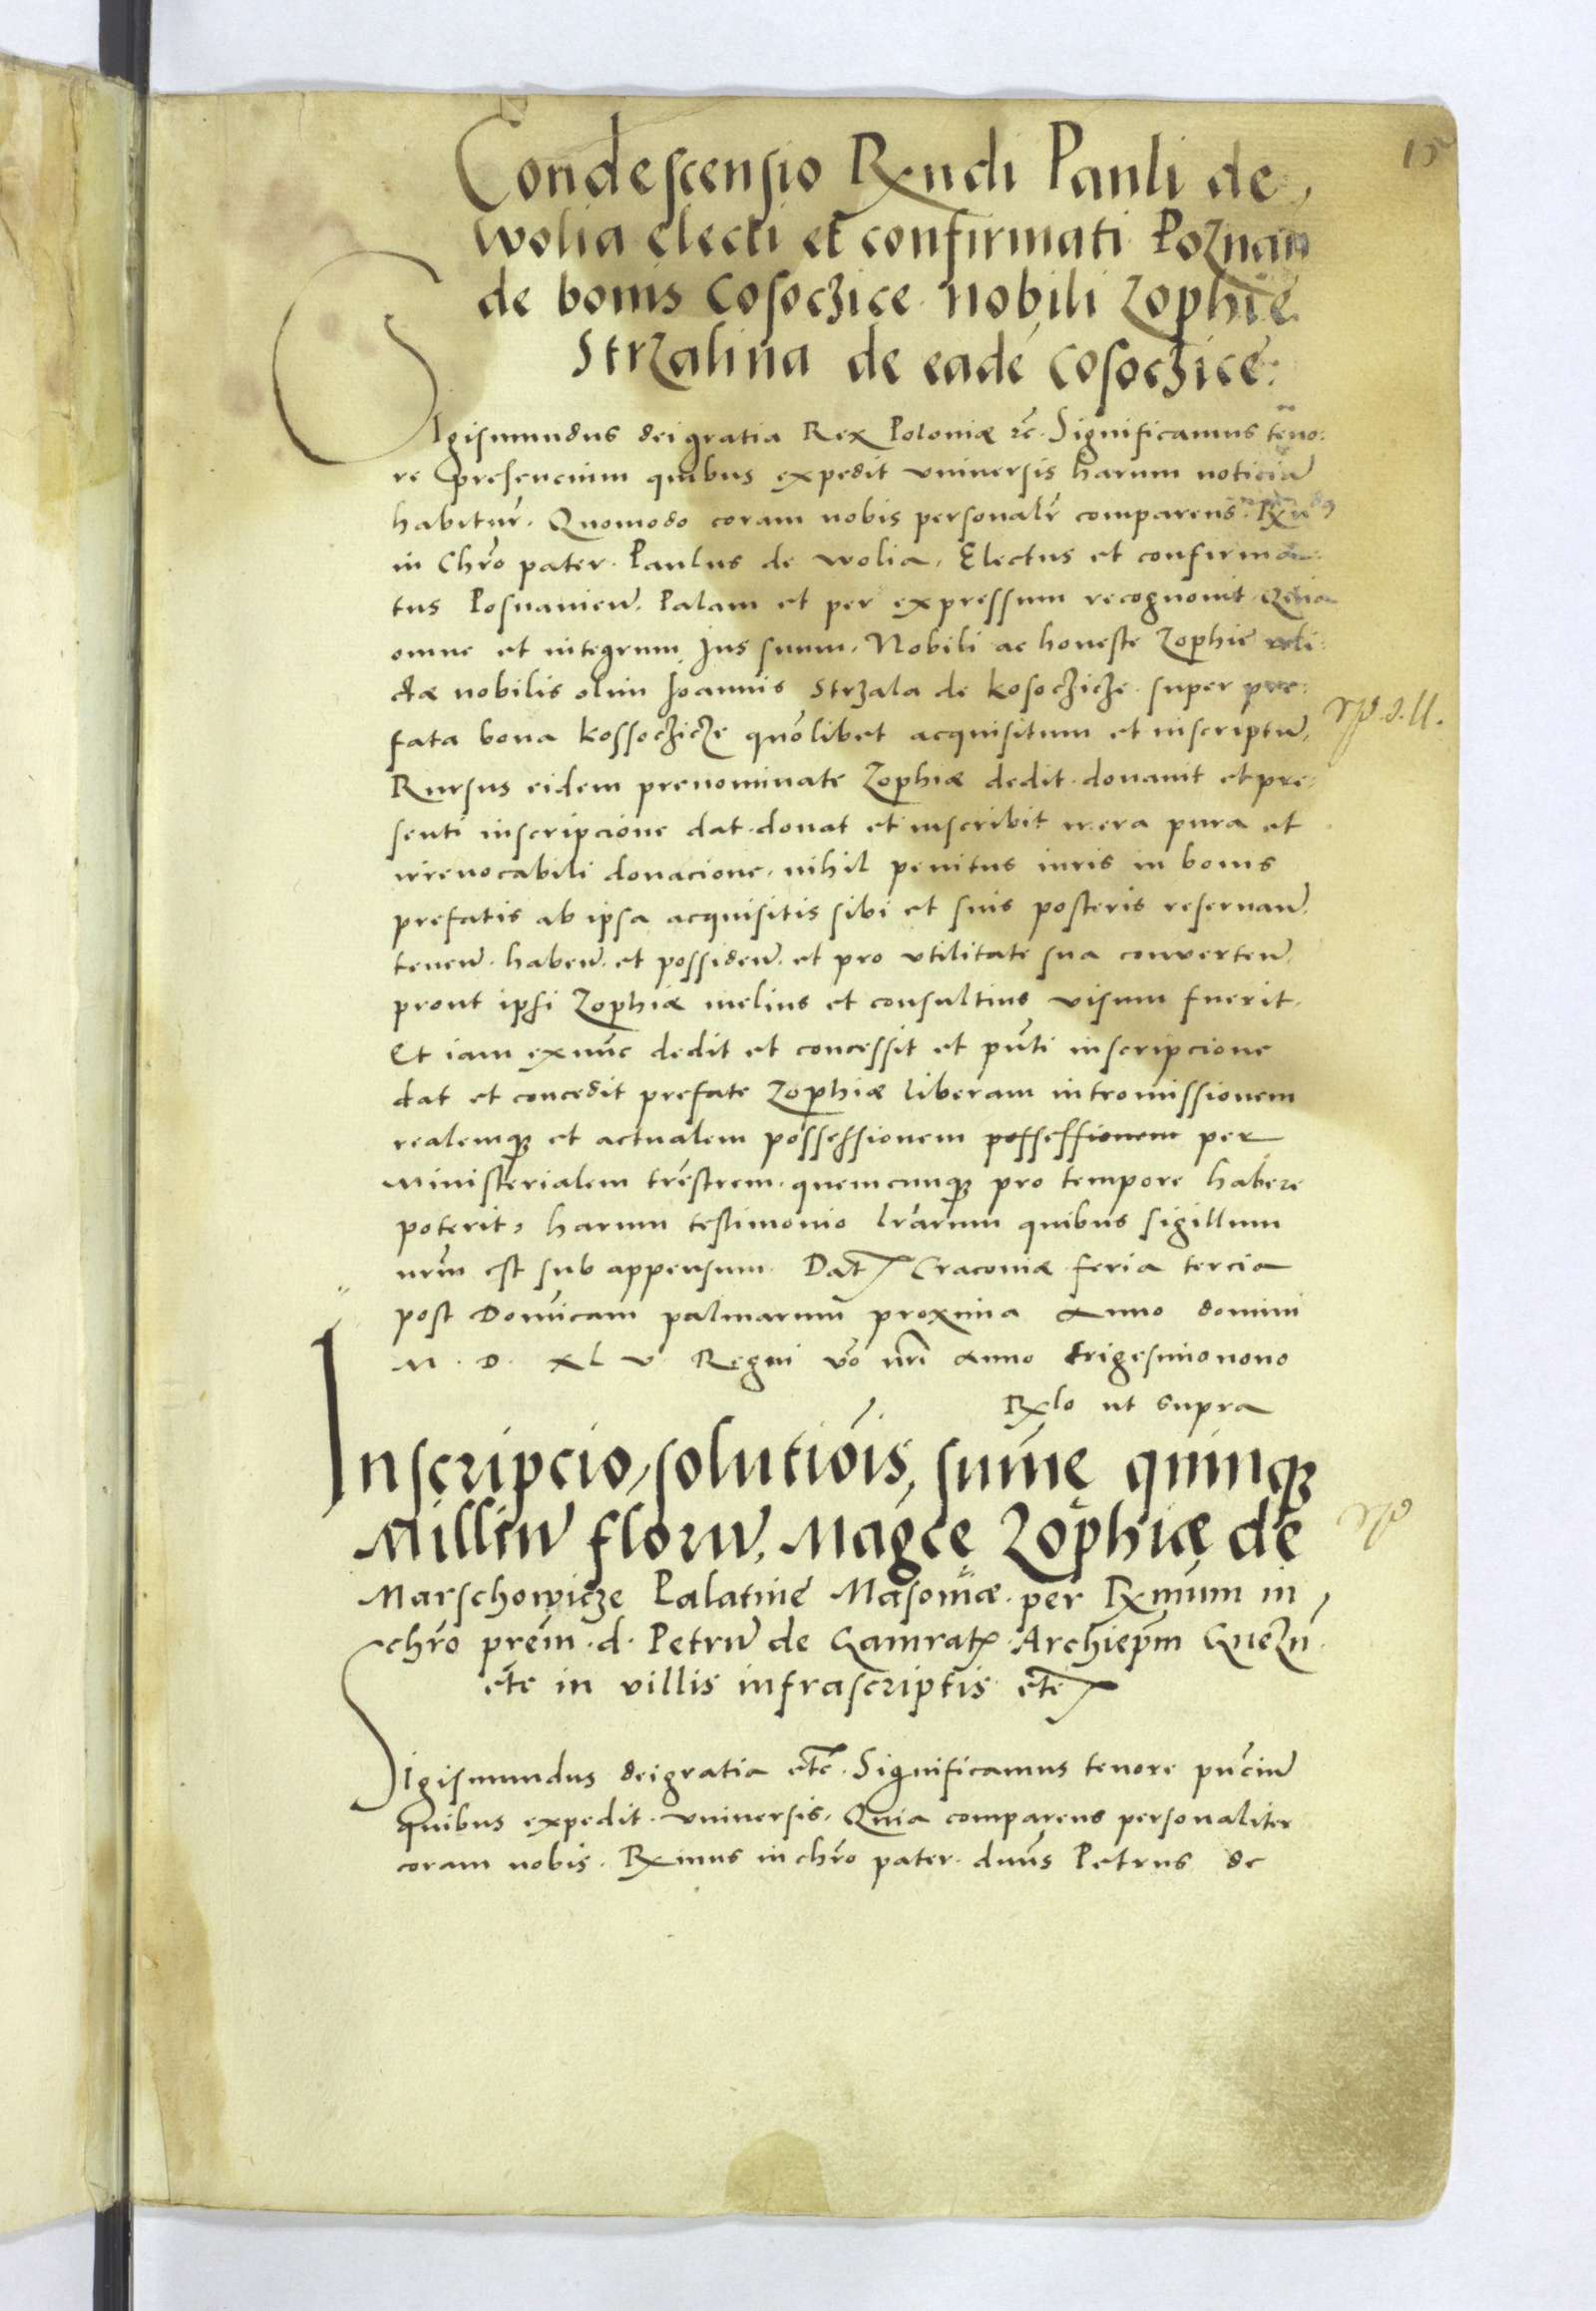 15
Condescensio Rxndi Pauli de
wolia electi et confirmati Poznan̄
de bonis Cosoczice nobili Zophie
Strzalina de eadē Cosoczice
Sigismundus dei gratia Rex Poloniæ ꝛc̄. Significamus teno:
re presencium quibus expedit vniuersis harum noticiā
habitur̄. Quomodo coram nobis personalr̄ comparens Rx̄ndus
in Chr̄o pater. Paulus de wolia, Electus et confirma:
tus Posnanien̄. Palam et per expressum recognouit Quia
omne et integrum Jus suum, Nobili ac honeste Zophie reli:
ctæ nobilis olim Joannis Strzala de kosoczicze super pre:
fata bona kossoczicze quōlibet acquisitum et inscriptū,
Rursus eidem prenominate Zophiæ dedit donauit et pre:
senti inscripcione dat donat et inscribit mera pura et
irreuocabili donacione, nihil penitus iuris in bonis
prefatis ab ipsa acquisitis sibi et suis posteris reseruan̄.
tenen̄. haben̄. et possiden̄. et pro vtilitate sua conuerten̄.
prout ipsi Zophiæ melius et consultius visum fuerit.
Et iam exnūc dedit et concessit et pn̄ti inscripcione
dat et concedit prefate Zophiæ liberam intromissionem
realemqꝫ et actualem possessionem possessionem per
Ministerialem tr̄estrem quemcunqꝫ pro tempore habere
poterit, harum testimonio lr̄arum quibus sigillum
nrm̄ est sub appensum. Dat̄ Cracouiæ feria tercia
post Domīcam palmarum proxima Anno domini
M. D. XL V Regni vō nrī Anno trigesimonono
Rxlo ut supra
Inscripcio, solutiōis, sum̄e quinqꝫ
Milliū florū, Magc̄e Zophiæ de
Marschowicze Palatine Masouiæ per Rxmum in
chr̄o pr̄em .d. Petrū de Gamrat Archiep̄m Gnezn̄.
etc̄ in villis infrascriptis etc̄
Sigismundus dei gratia etc̄. Significamus tenore pn̄ciū
quibus expedit vniuersis, Quia comparens personaliter
coram nobis. Rxmus in chr̄o pater dnūs Petrus de